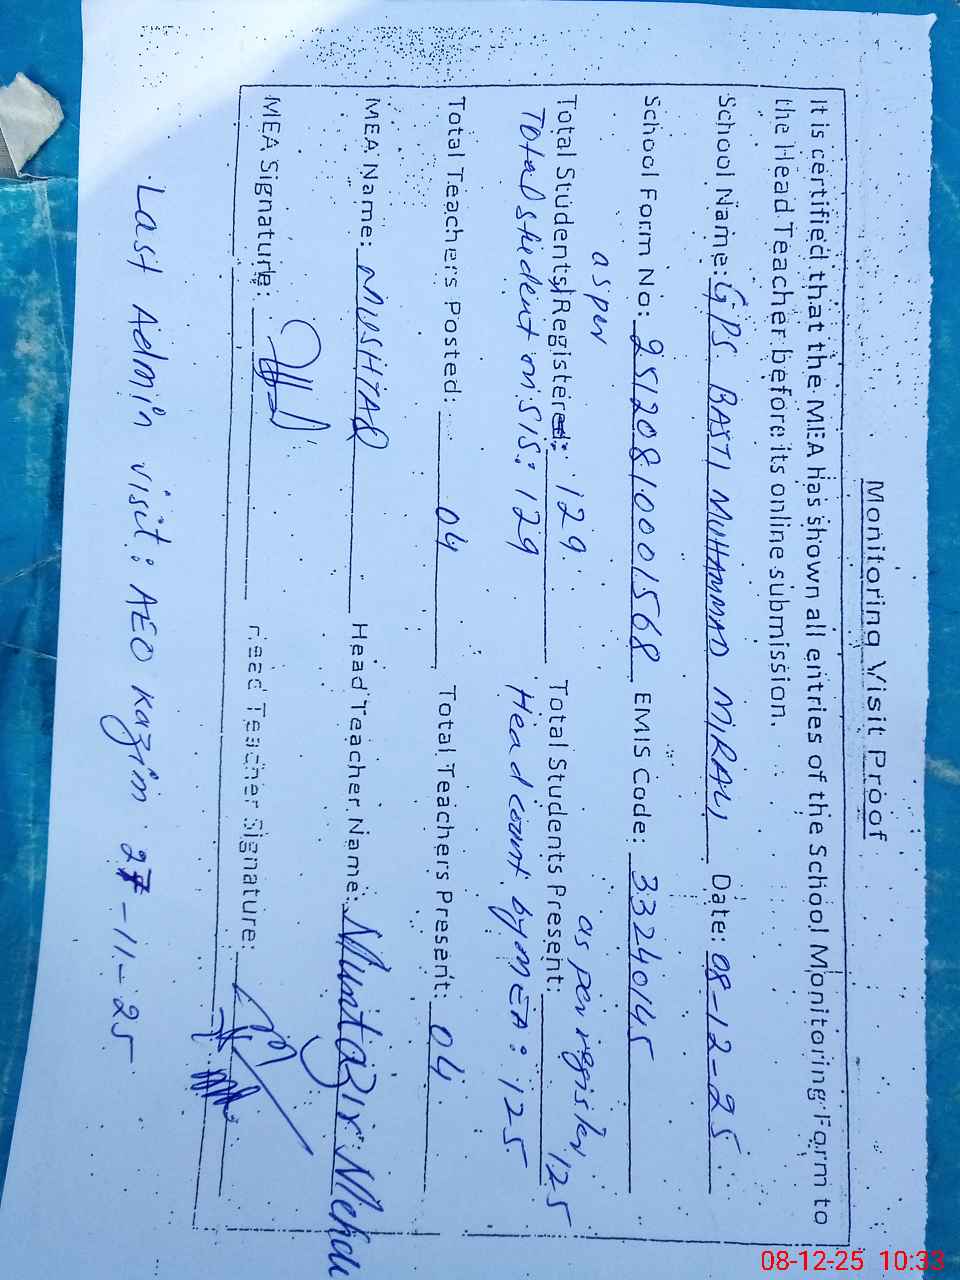 Monitoring Visit Proof
It is certified that the MEA has shown all entries of the School Monitoring Form to
the Head Teacher before its online submission.
School Name: GPS BASTI MUHAMMAD MIRALI Date: 08-12-25
School Form No: 25120810001568 EMIS Code: 33240145
as per as per register
Total Students Registered: 129 Total Students Present: 125
Total student on SIS: 129 Head count by MEA: 125
Total Teachers Posted: 04 Total Teachers Present: 04
MEA Name: MUSHTAQ Head Teacher Name: Muntazir Mehdi
MEA Signature: Head Teacher Signature:
Last Admin visit: AEO Kazim 27-11-25
08-12-25 10:33